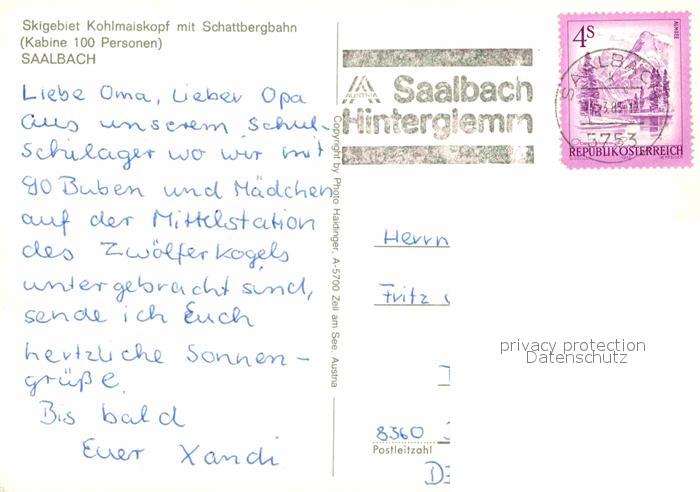 Skigebiet Kohlmaiskopf mit Schattbergbahn
(Kabine 100 Personen)
SAALBACH
Liebe Oma, Lieber Opa
Aus unserem Schul-
schilager wo wir mit
90 Buben und Mädchen
auf der Mittelstation
des Zwölferkogels
untergebracht sind,
sende ich Euch
hertzliche Sonnen-
grüße.
Bis bald
Euer Xandi
Copyright by Photo Haidinger, A-5700 Zell am See, Austria
AUSTRIA
Saalbach
Hinterglemm
4S
ALMSEE
SAALBACH
5753
REPUBLIK ÖSTERREICH
Herrn
Fritz
8360
Postleitzahl
privacy protection
Datenschutz